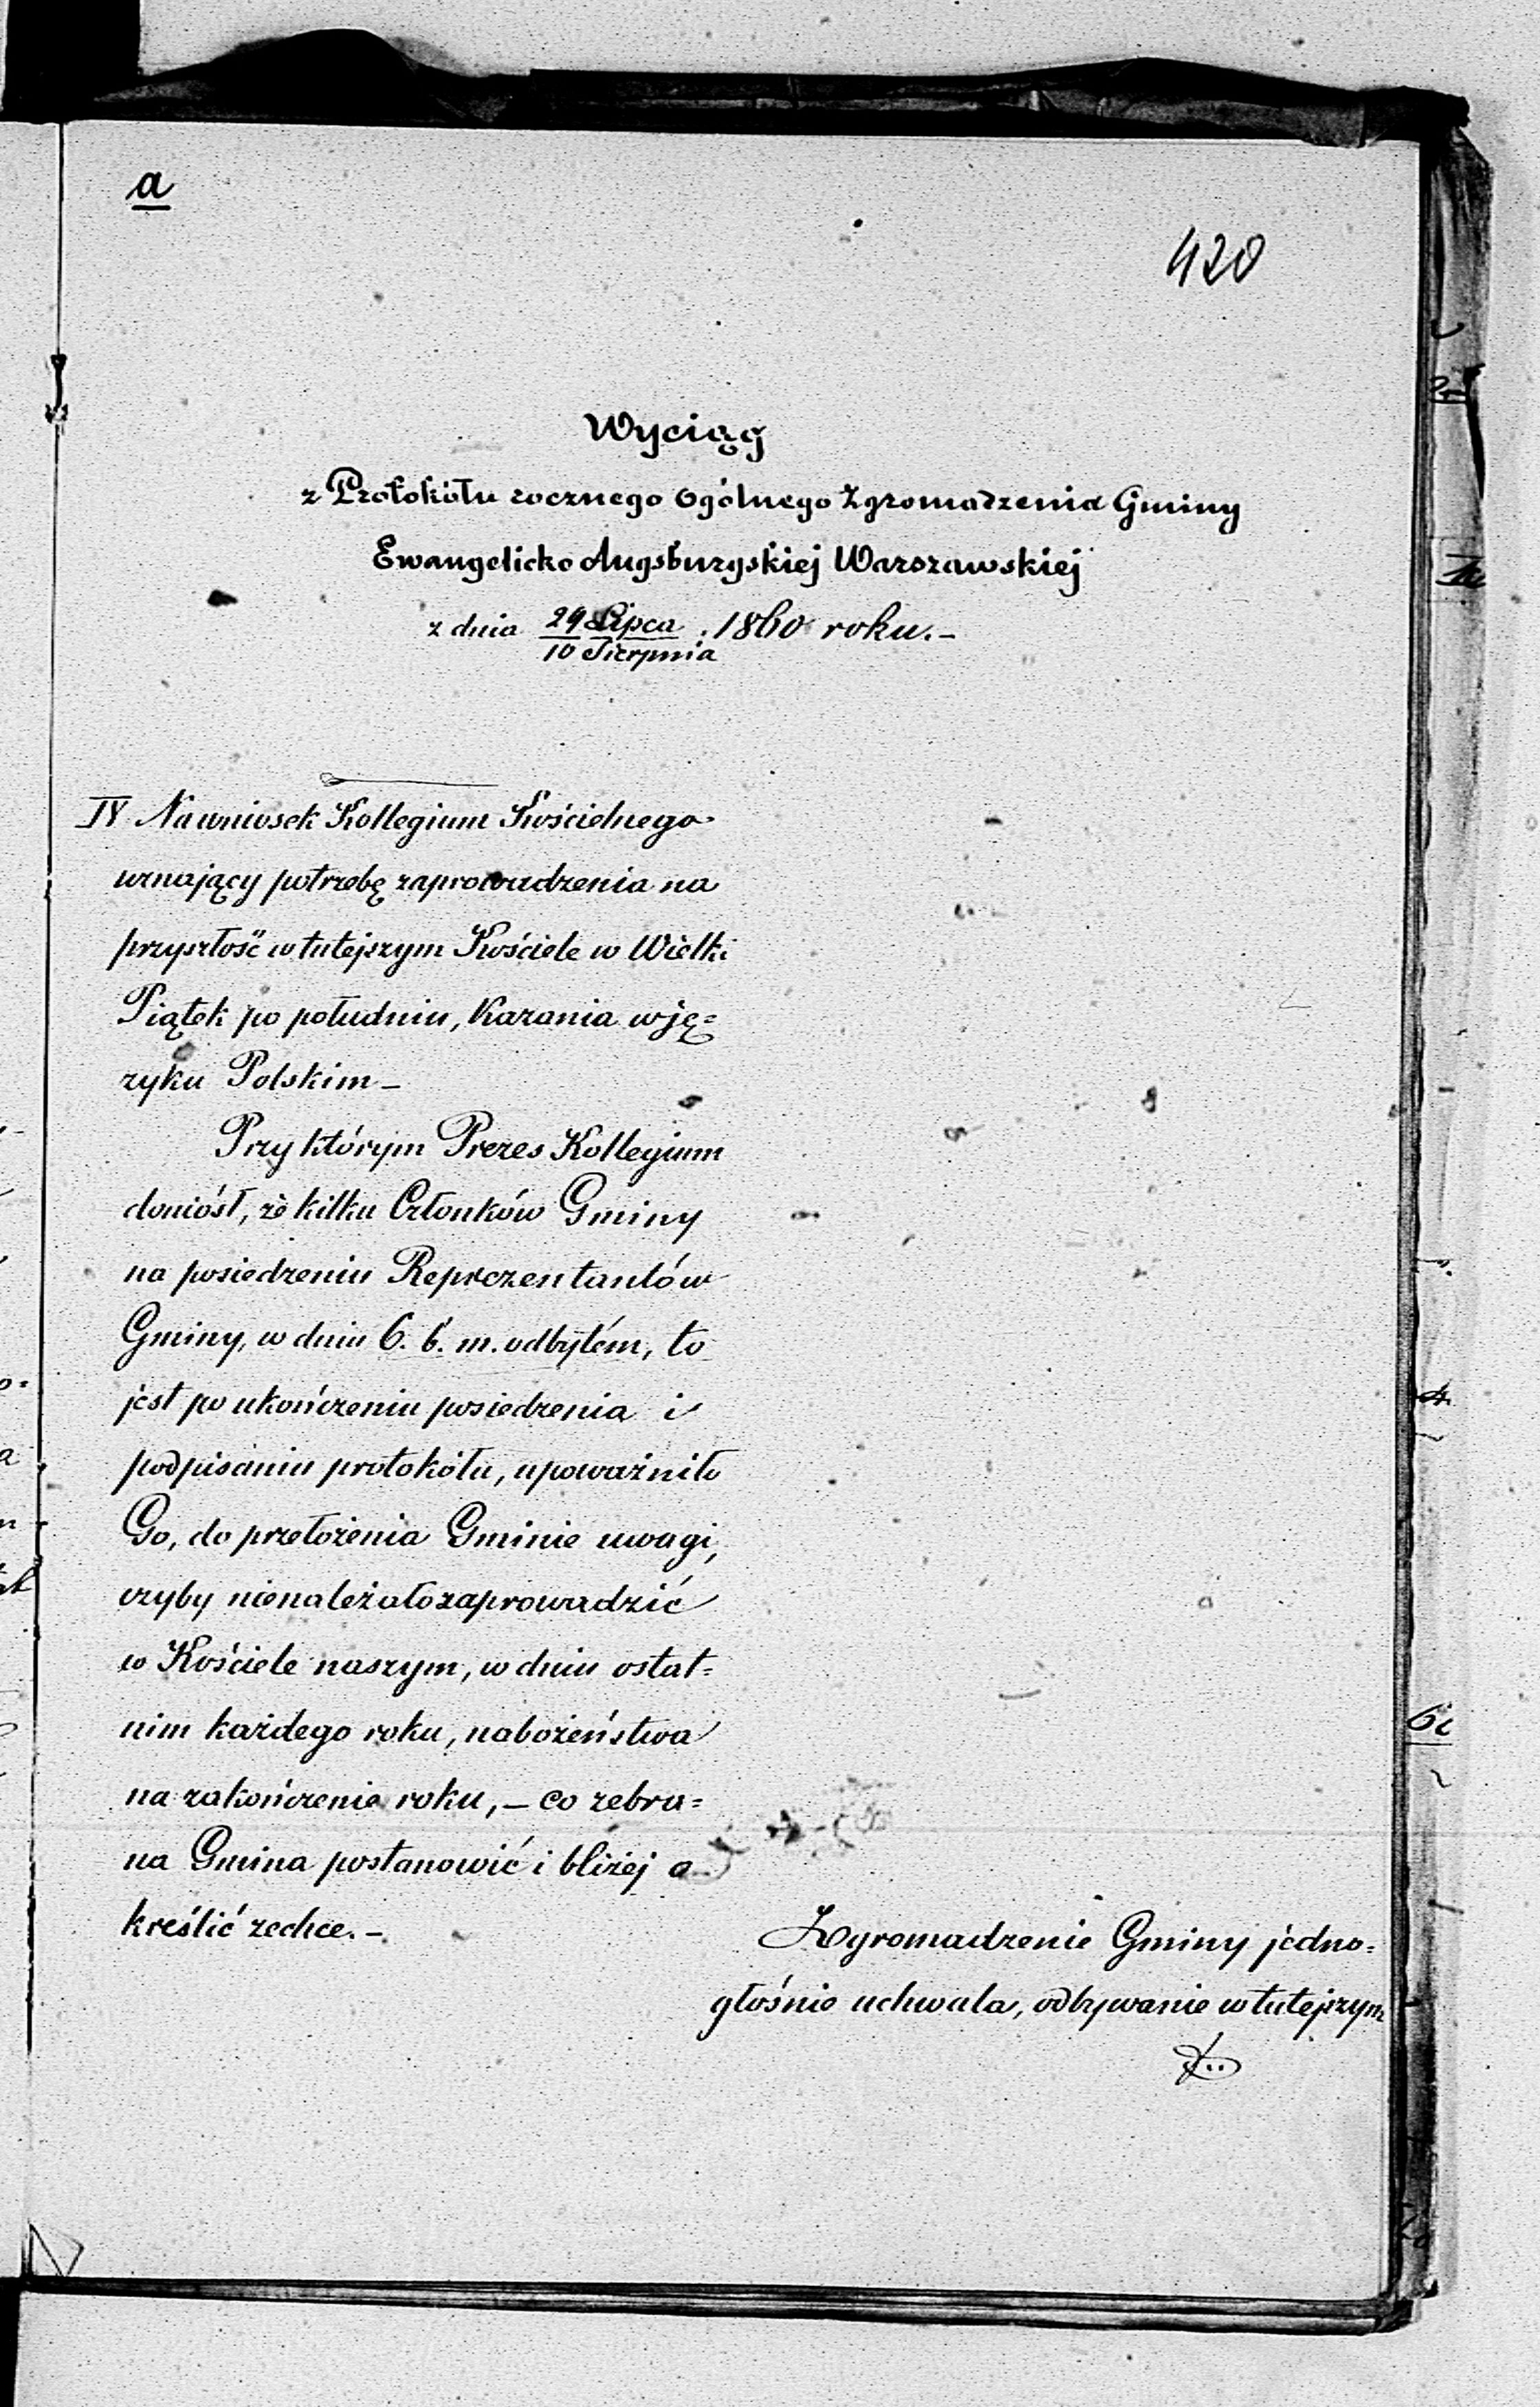 a
420
Wyciąg
z Protokółu rocznego Ogólnego Zgromadzenia Gminy
Ewangelicko Augsburgskiej Warszawskiej
z dnia 29 Lipca / 10 Sierpnia 1860 roku.-
IV Na wniosek Kollegium Kościelnego
uznający potrzebę zaprowadzenia na
przyszłość w tutejszym Kościele w Wielki
Piątek po południu, Kazania w ję=
zyku Polskim -
Przy którym Prezes Kollegium
doniósł, że kilku Członków Gminy
na posiedzeniu Reprezentantów
Gminy, w dniu 6. b. m. odbytém, to
jest po ukończeniu posiedzenia i
podpisaniu protokółu, upoważniło
Go, do przełożenia Gminie uwagi,
czyby nienależało zaprowadzić
w Kościele naszym, w dniu ostat=
nim każdego roku, nabożeństwa
na zakończenie roku, - co zebra=
na Gmina postanowić i bliżej o
kreślić zechce. -
Zgromadzenie Gminy jedno=
głośnie uchwala, odbywanie w tutejszym